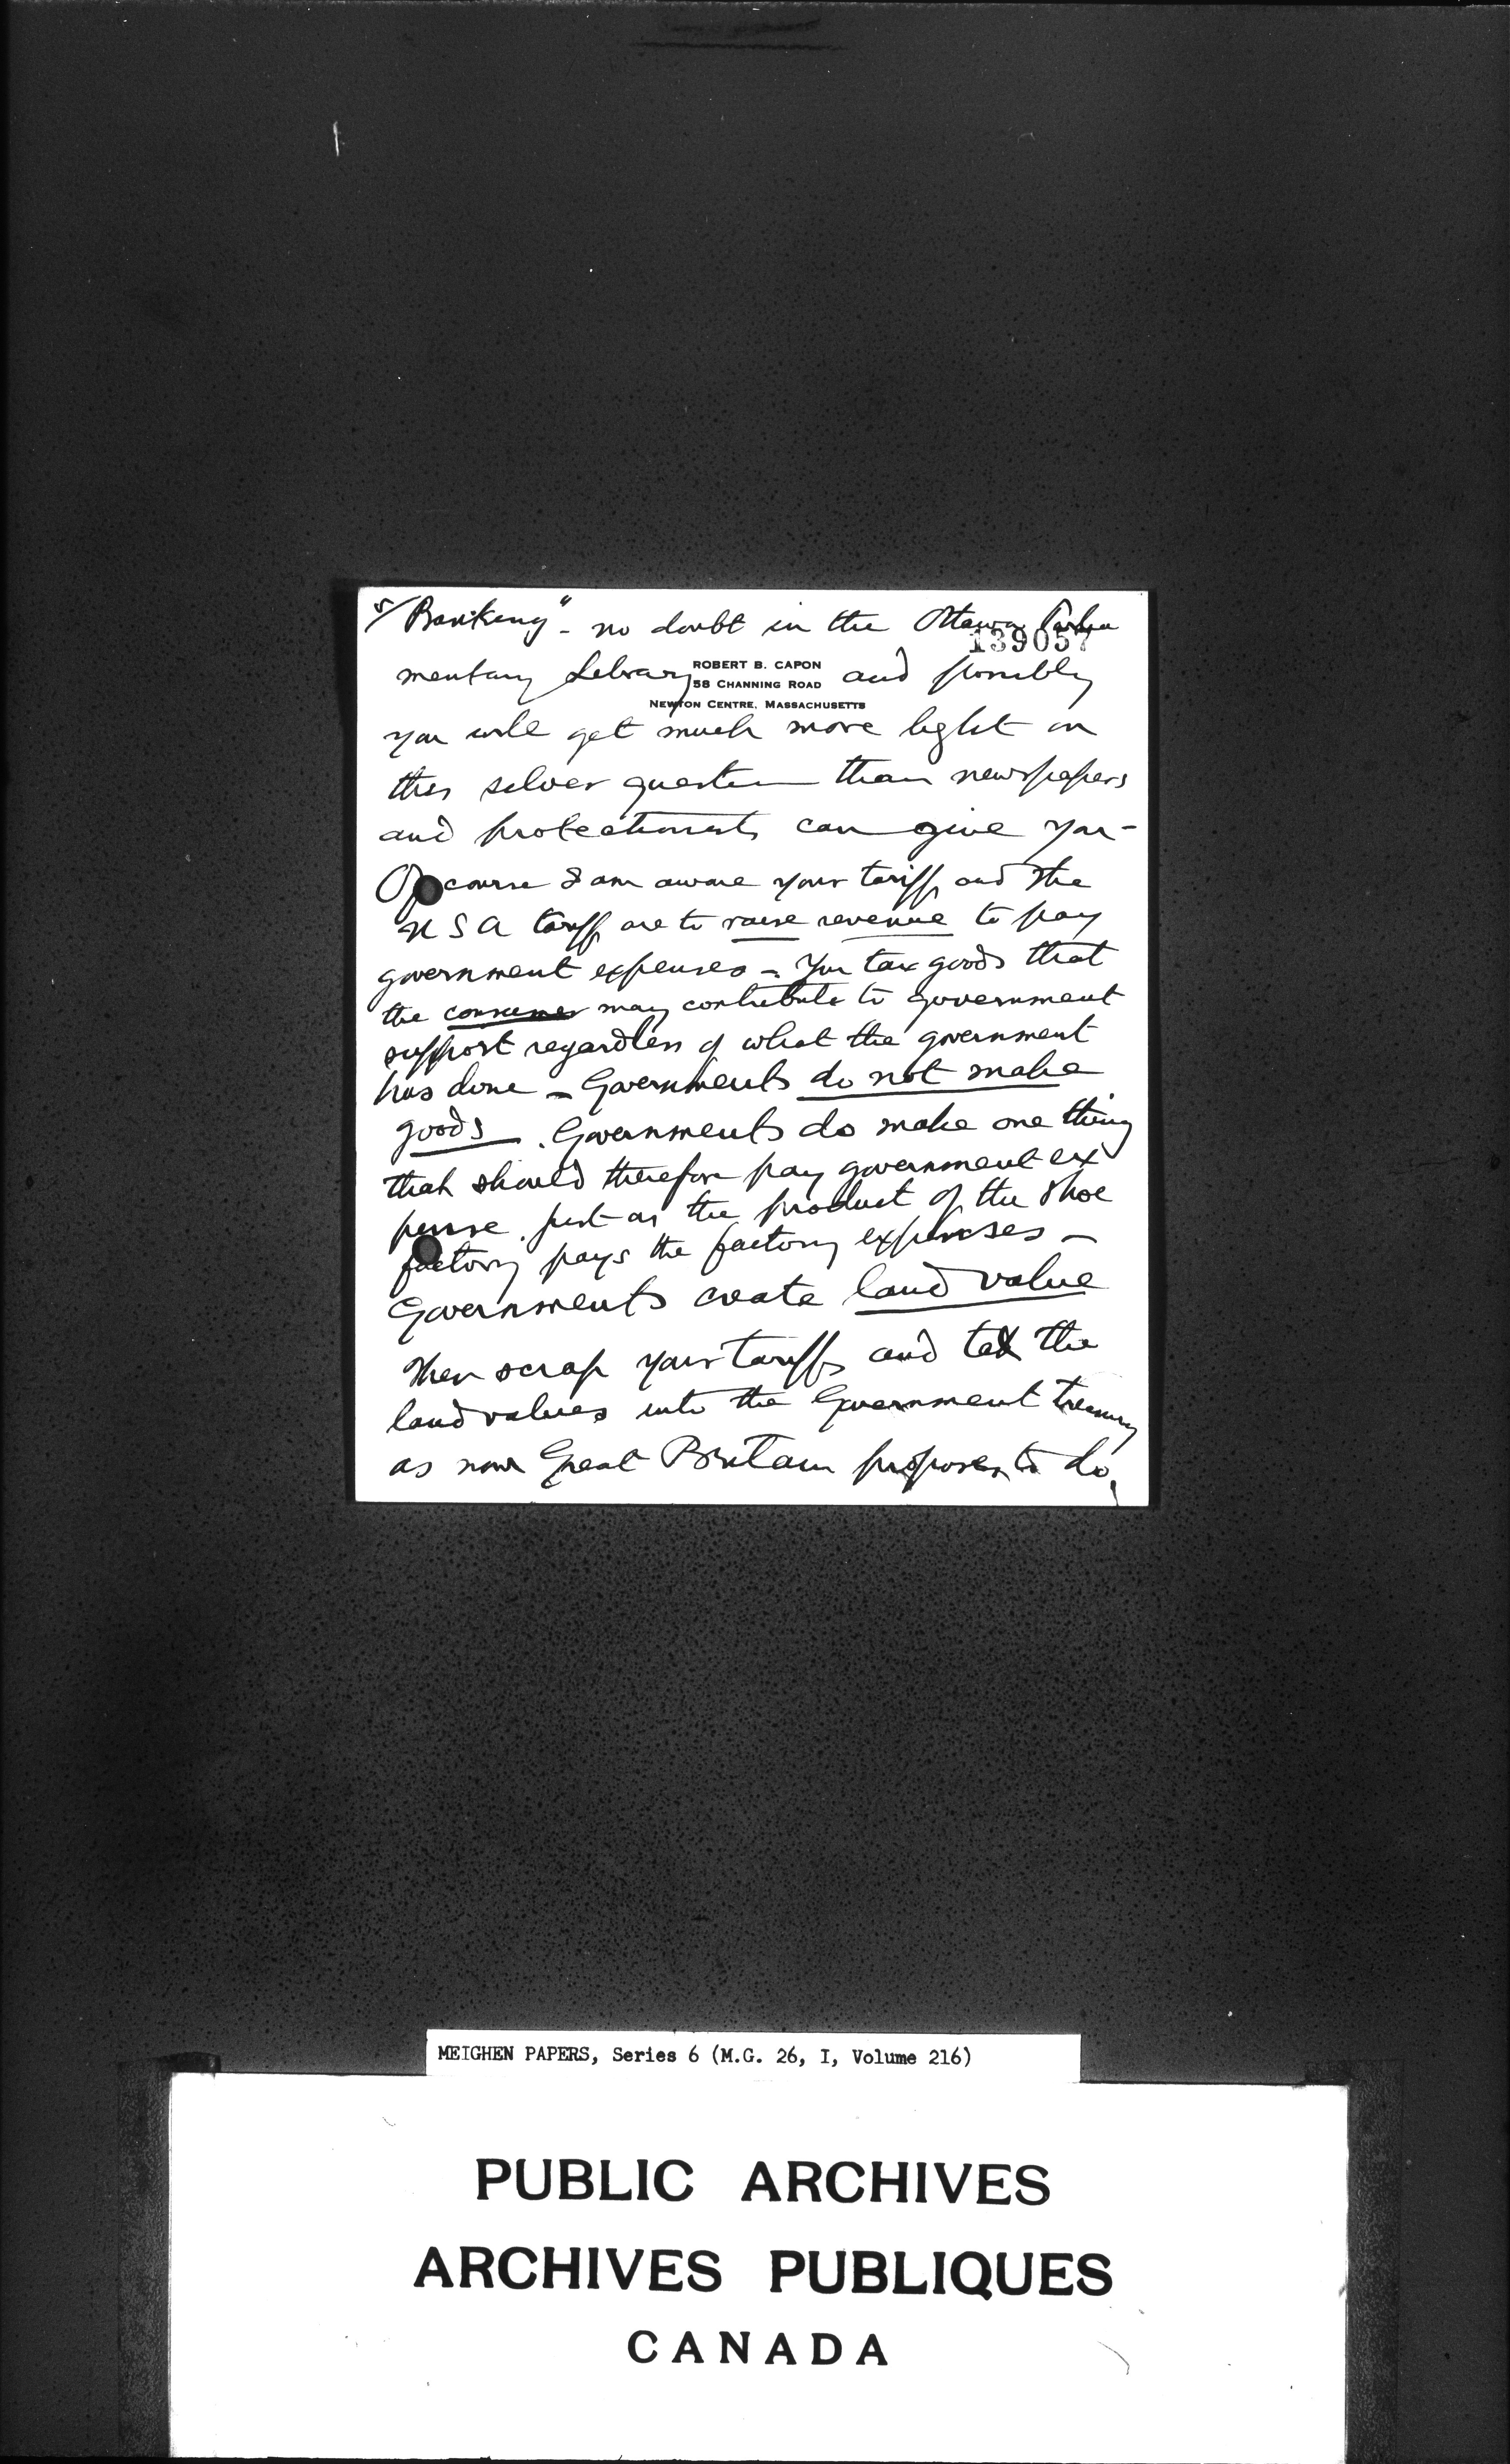 5/ Banking" - no doubt in the Ottawa Parlia
139057
mentary Library and possibly
ROBERT B. CAPON
58 CHANNING ROAD
NEWTON CENTRE, MASSACHUSETTS
you will get much more light on
this silver question than newspapers
and protectionists can give you -
Of course I am aware your tariff and the
U S A tariff are to raise revenue to pay
government expenses - You tax goods that
the consumer may contribute to government
support regardless of what the government
has done - Governments do not make
goods. Governments do make one thing
that should therefore pay government ex
pense, just as the product of the shoe
factory pays the factory expenses -
Governments create land value
Then scrap your tariffs and tax the
land values into the Government treasury
as now Great Britain proposes to do,
MEIGHEN PAPERS, Series 6 (M.G. 26, I, Volume 216)
PUBLIC ARCHIVES
ARCHIVES PUBLIQUES
CANADA